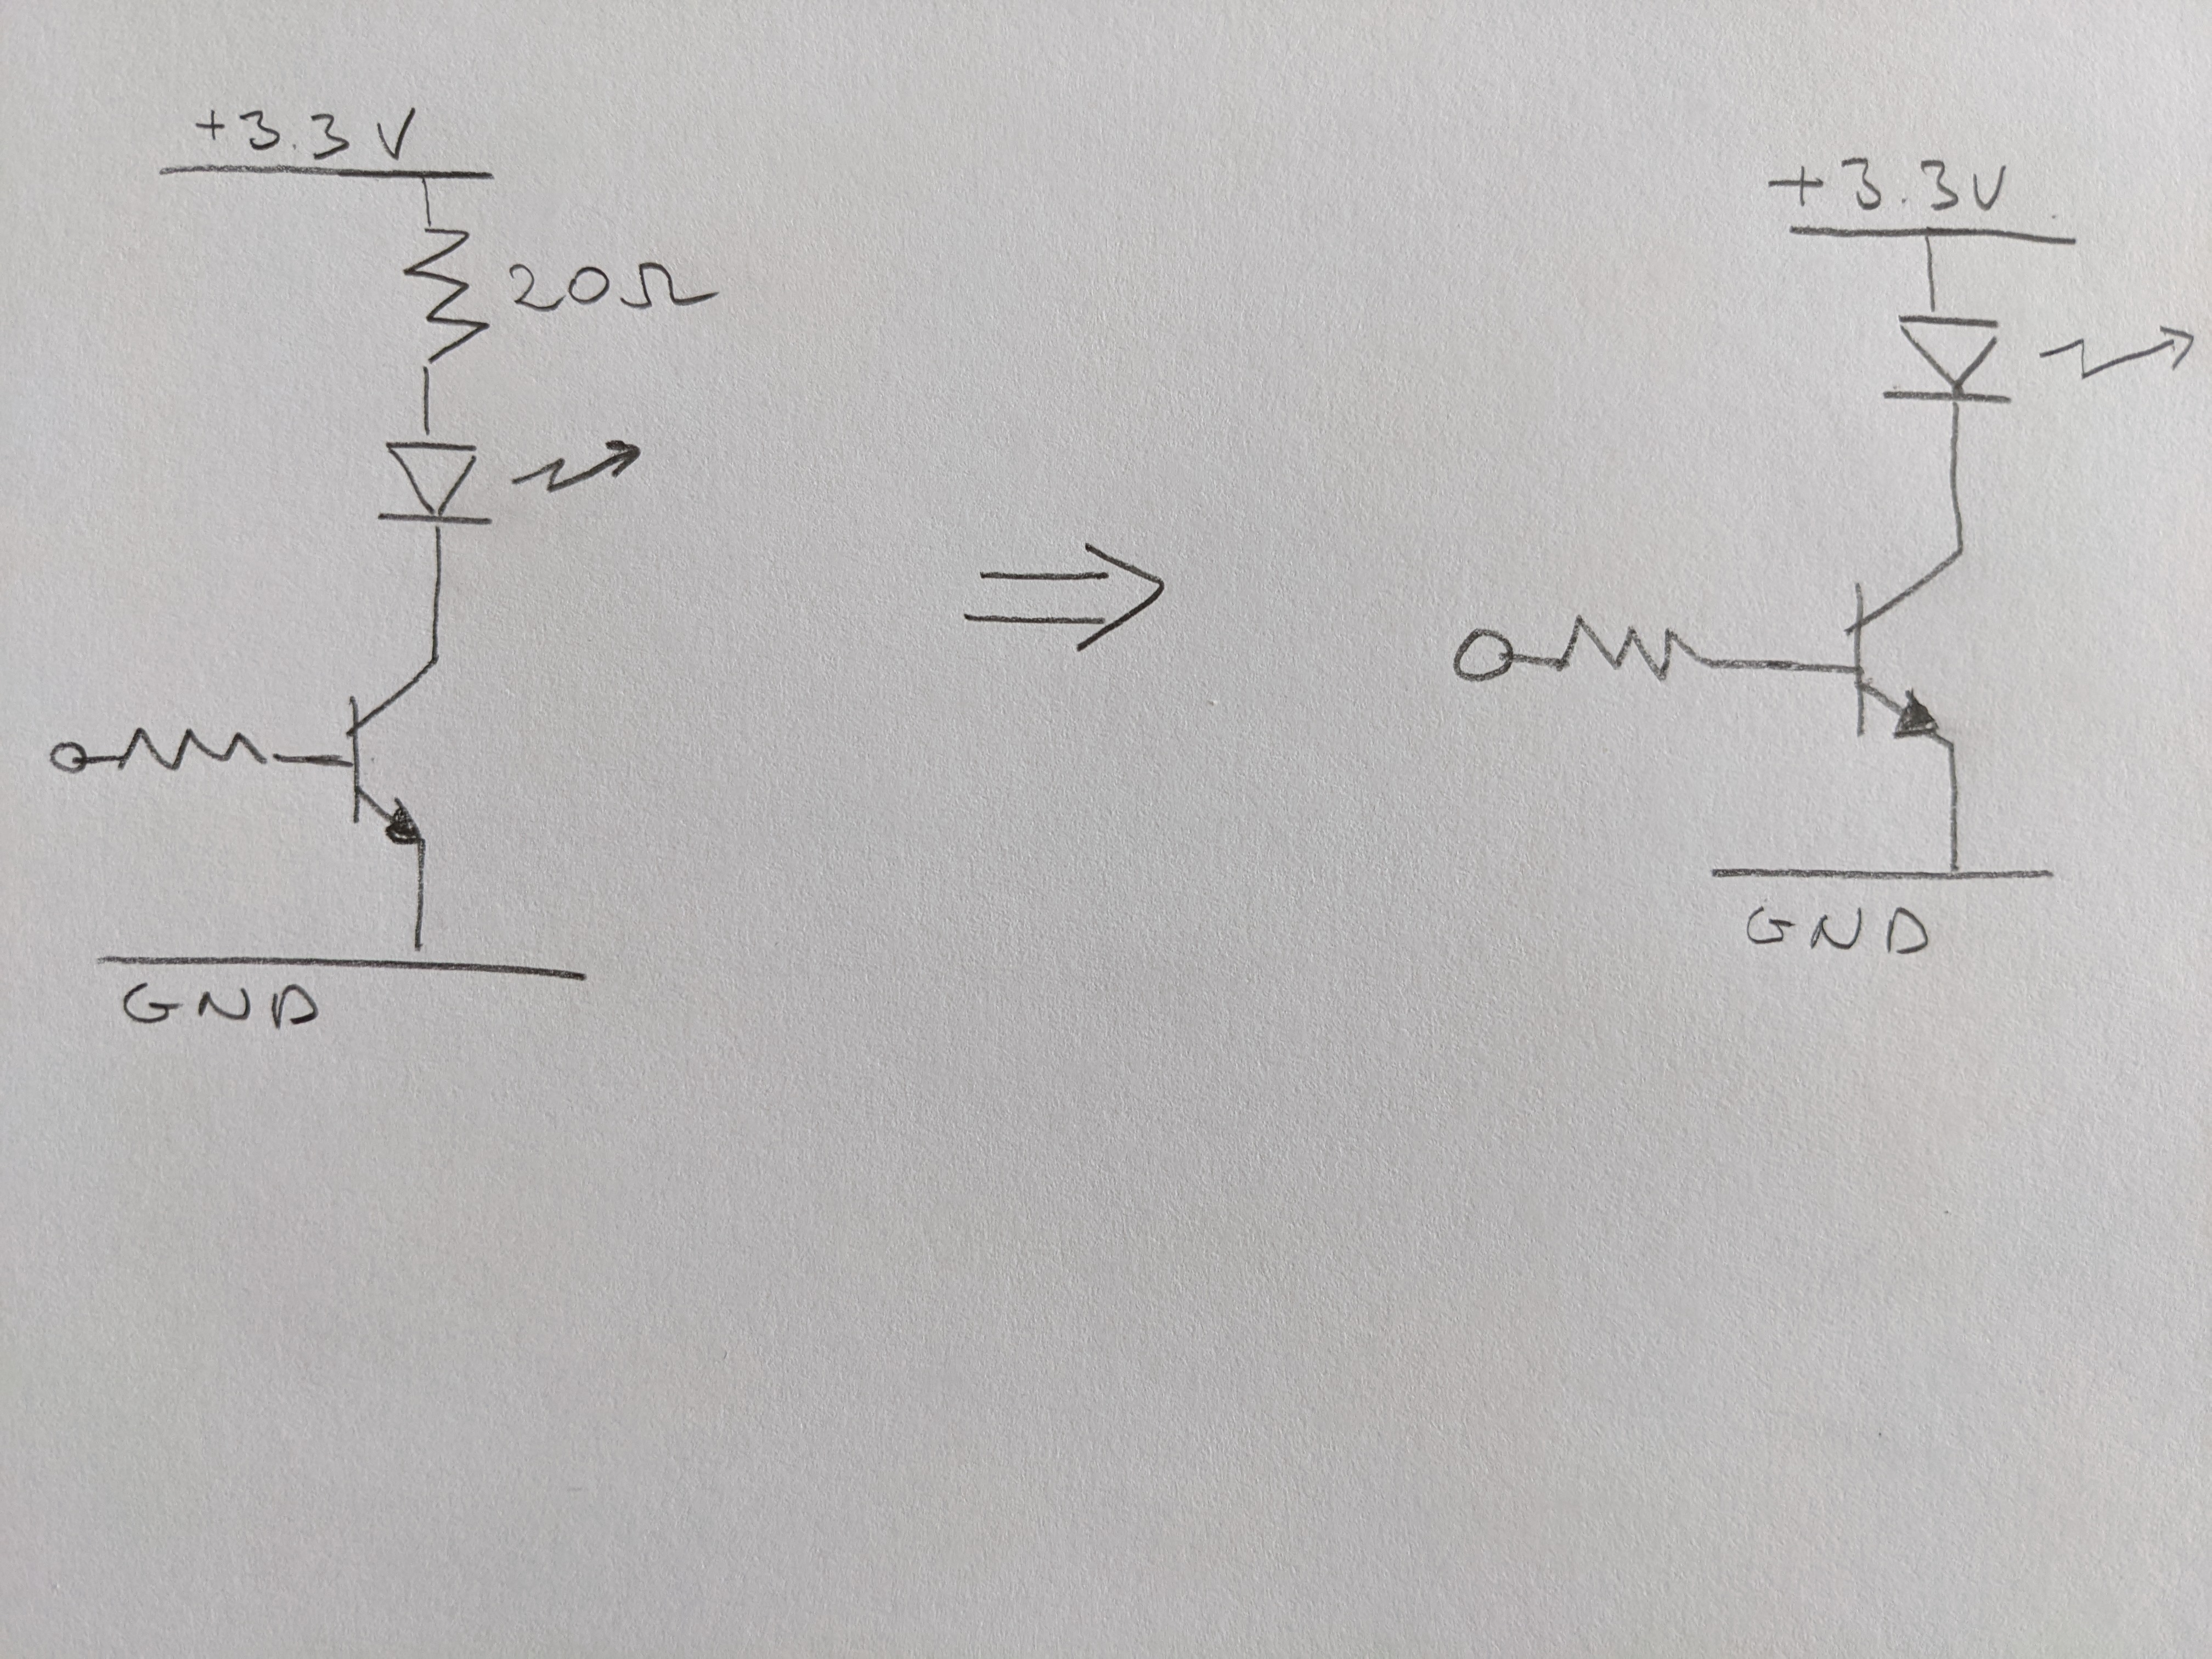 +3.3 V
20Ω
GND
+3.3V
GND